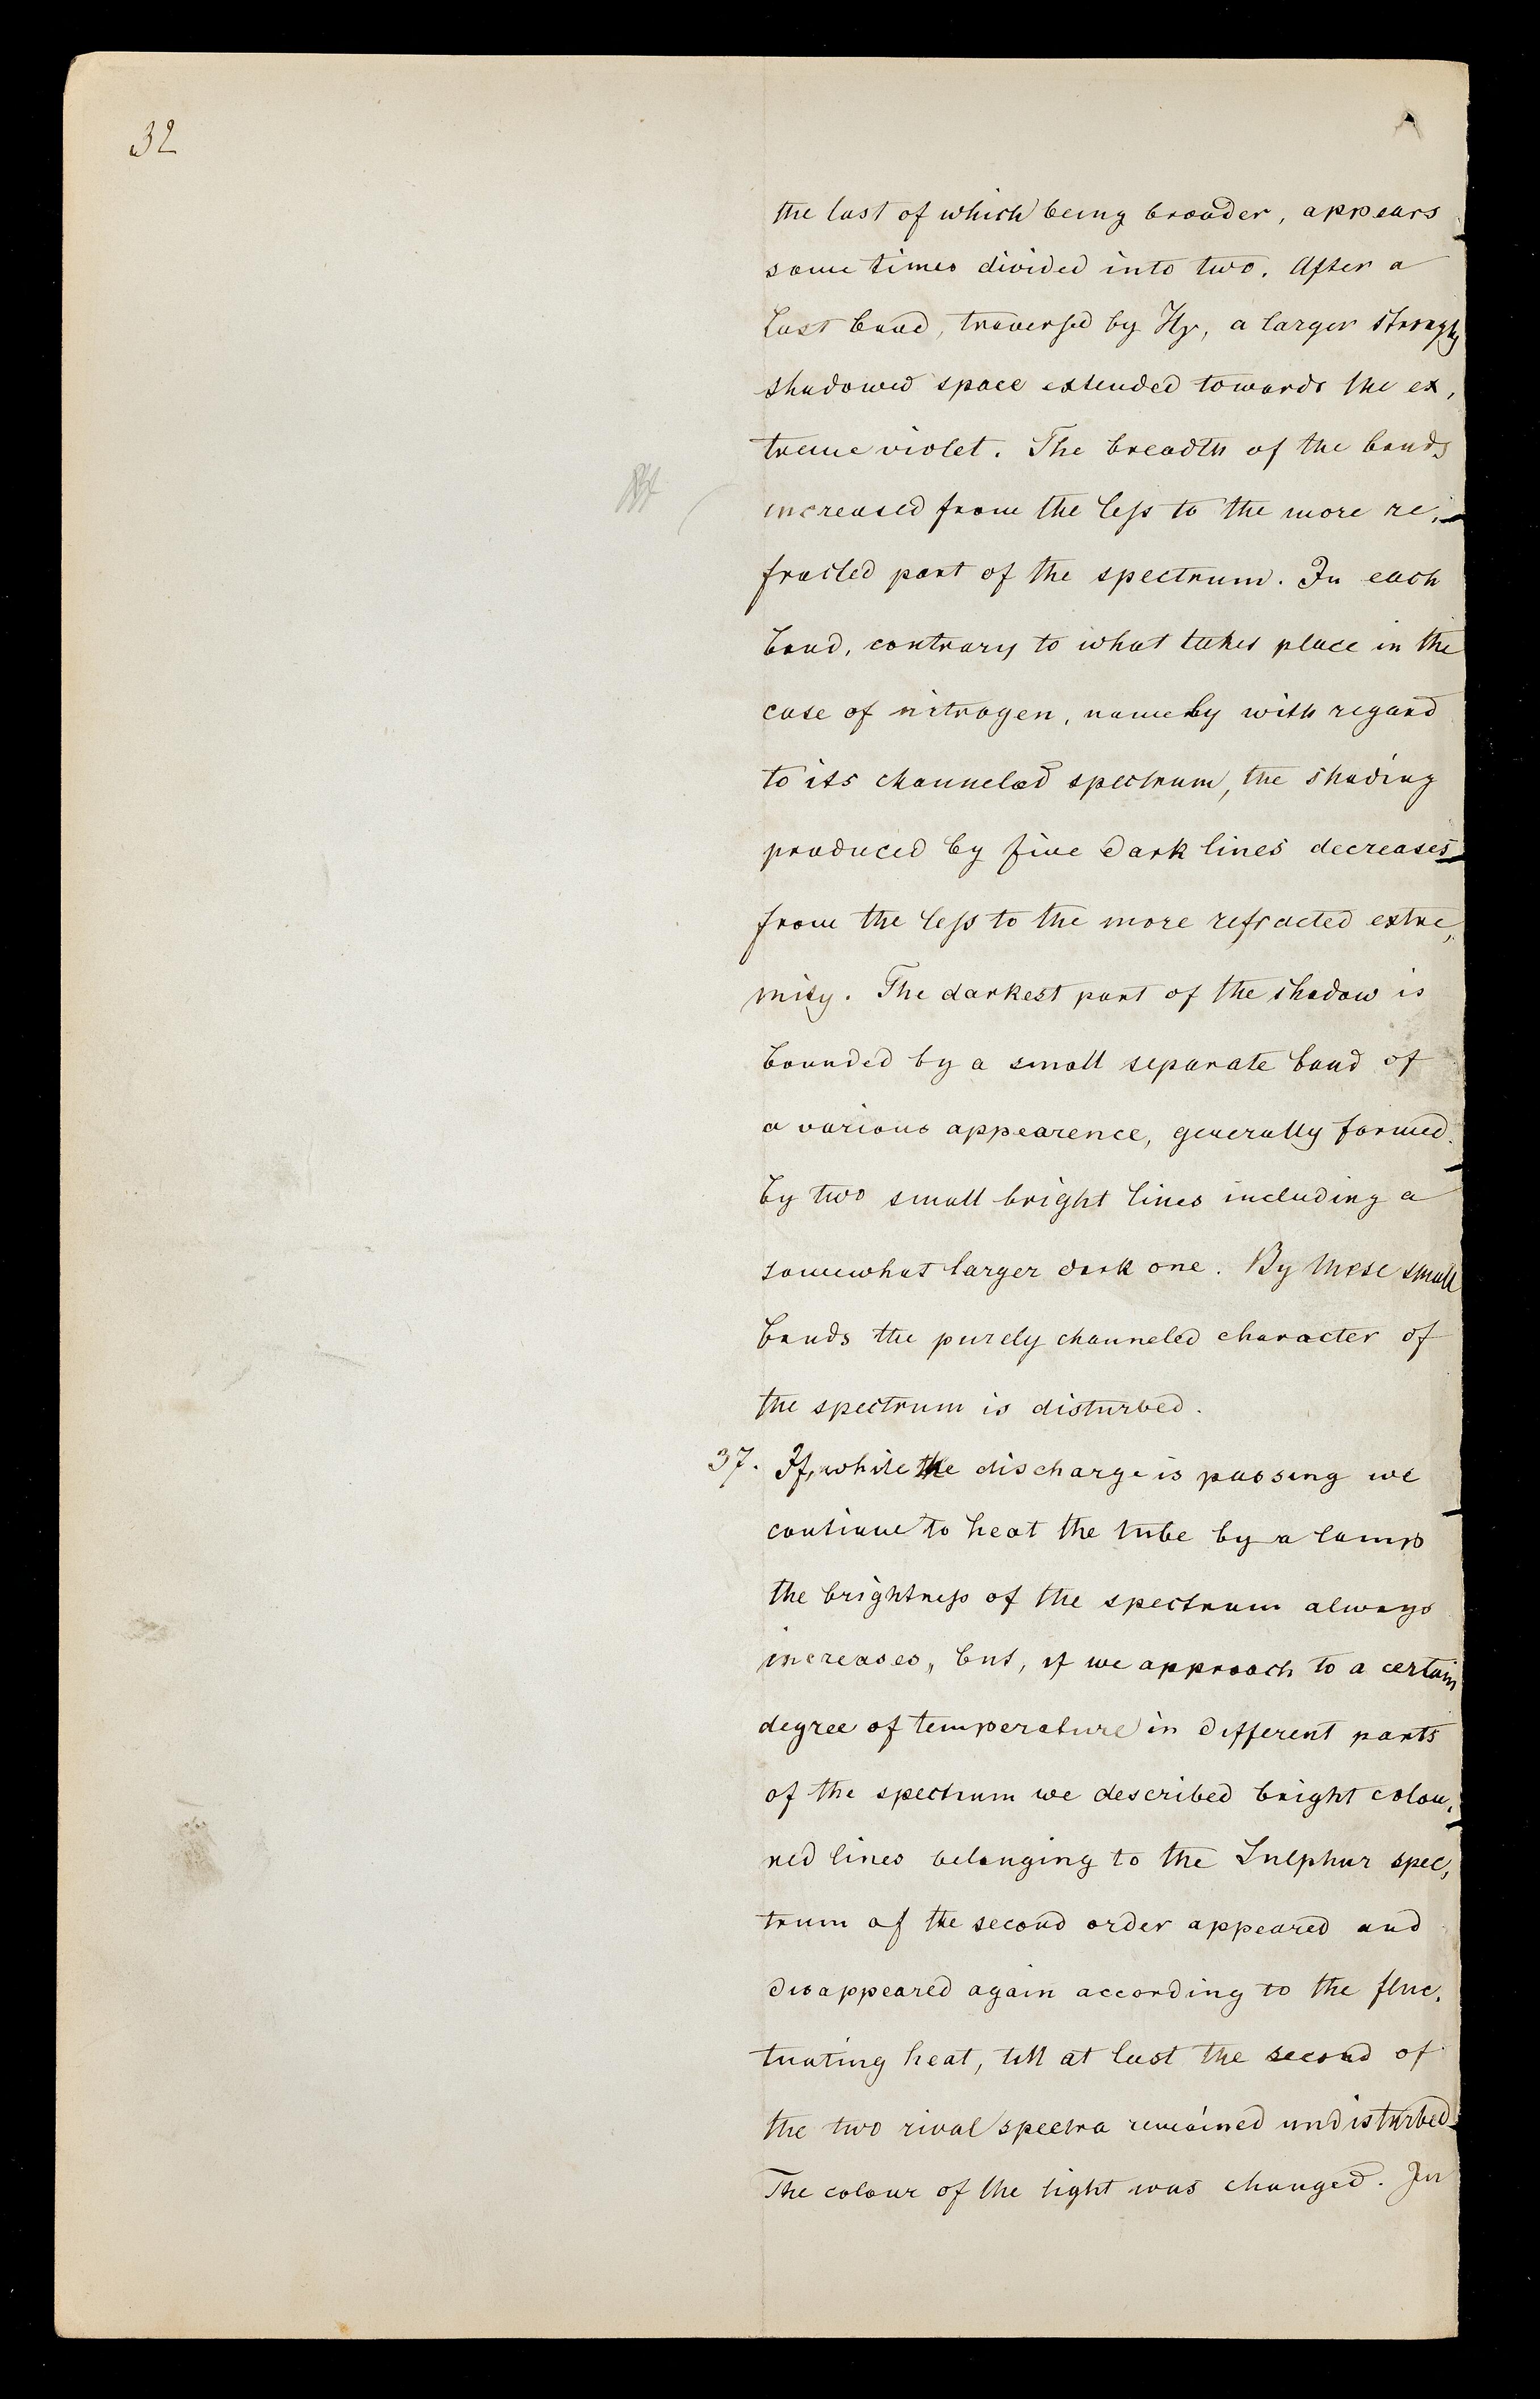 32
the last of which being broader, appears
some times divided into two. After a
last band, traversed by Hγ, a larger strongly
shadowed space extended towards the ex,
treme violet. The breadth of the bands
increased from the less to the more re,
fracted part of the spectrum. In each
band, contrary to what takes place in the
case of nitrogen, namely with regard
to its channeled spectrum, the shading
produced by fine dark lines decreases
from the less to the more refracted extre,
mity. The darkest part of the shadow is
bounded by a small separate band of
a various appearence, generally formed
by two small bright lines including a
somewhat larger dark one. By these small
bands the purely channeled character of
the spectrum is disturbed.
37. If, while the discharge is passing we
continue to heat the tube by a lamp
the brightness of the spectrum always
increases, but, if we approach to a certain
degree of temperature in different parts
of the spectrum we described bright colou,
red lines belonging to the Sulphur spec,
trum of the second order appeared and
disappeared again according to the fluc,
tuating heat, till at last the second of
the two rival spectra remained undisturbed.
The colour of the light was changed. In